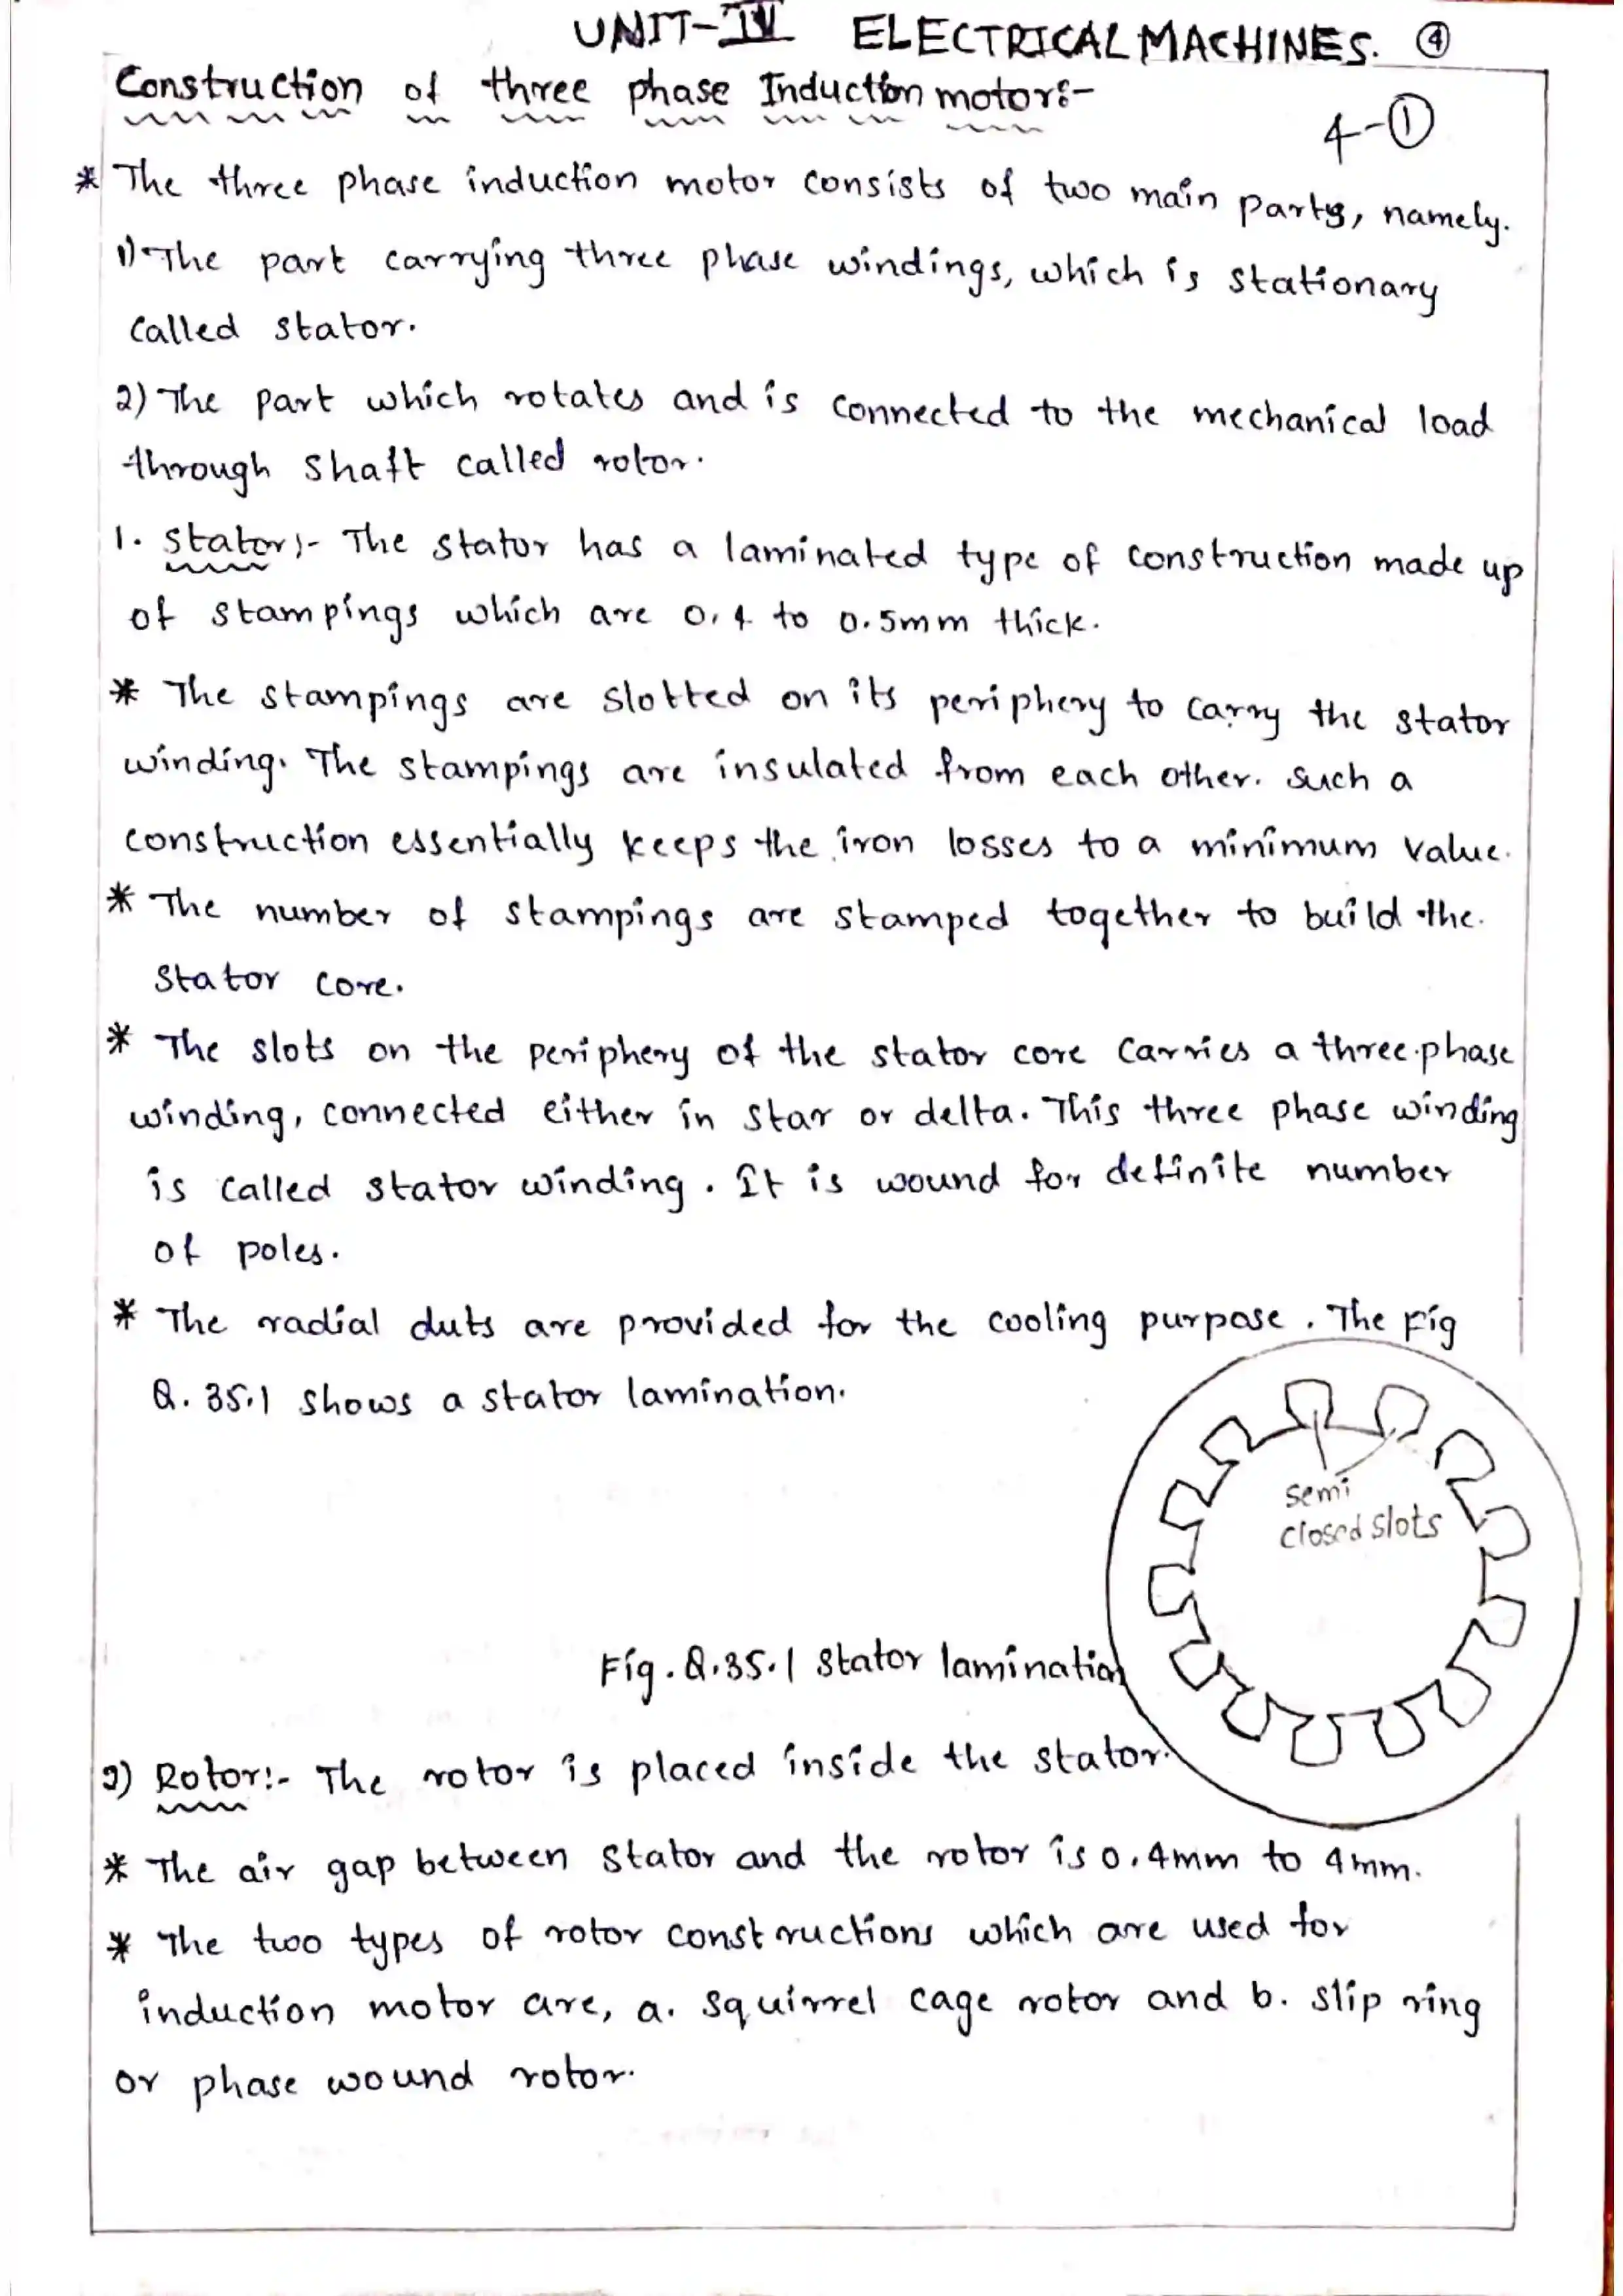 UNIT-IV ELECTRICAL MACHINES. ④
Construction of three phase Induction motor:-
4-①
* The three phase induction motor consists of two main parts, namely.
1) The part carrying three phase windings, which is stationary
called stator.
2) The part which rotates and is connected to the mechanical load
through shaft called rotor.
1. Stator:- The stator has a laminated type of construction made up
of stampings which are 0.4 to 0.5mm thick.
* The stampings are slotted on its periphery to carry the stator
winding. The stampings are insulated from each other. Such a
construction essentially keeps the iron losses to a minimum value.
* The number of stampings are stamped together to build the.
stator core.
* The slots on the periphery of the stator core carries a three phase
winding, connected either in star or delta. This three phase winding
is called stator winding. It is wound for definite number
of poles.
* The radial duts are provided for the cooling purpose. The Fig
Q. 35.1 shows a stator lamination.
semi
closed slots
Fig. Q.35.1 Stator lamination
2) Rotor:- The rotor is placed inside the stator.
* The air gap between stator and the rotor is 0.4mm to 4mm.
* The two types of rotor constructions which are used for
induction motor are, a. squirrel cage rotor and b. slip ring
or phase wound rotor.